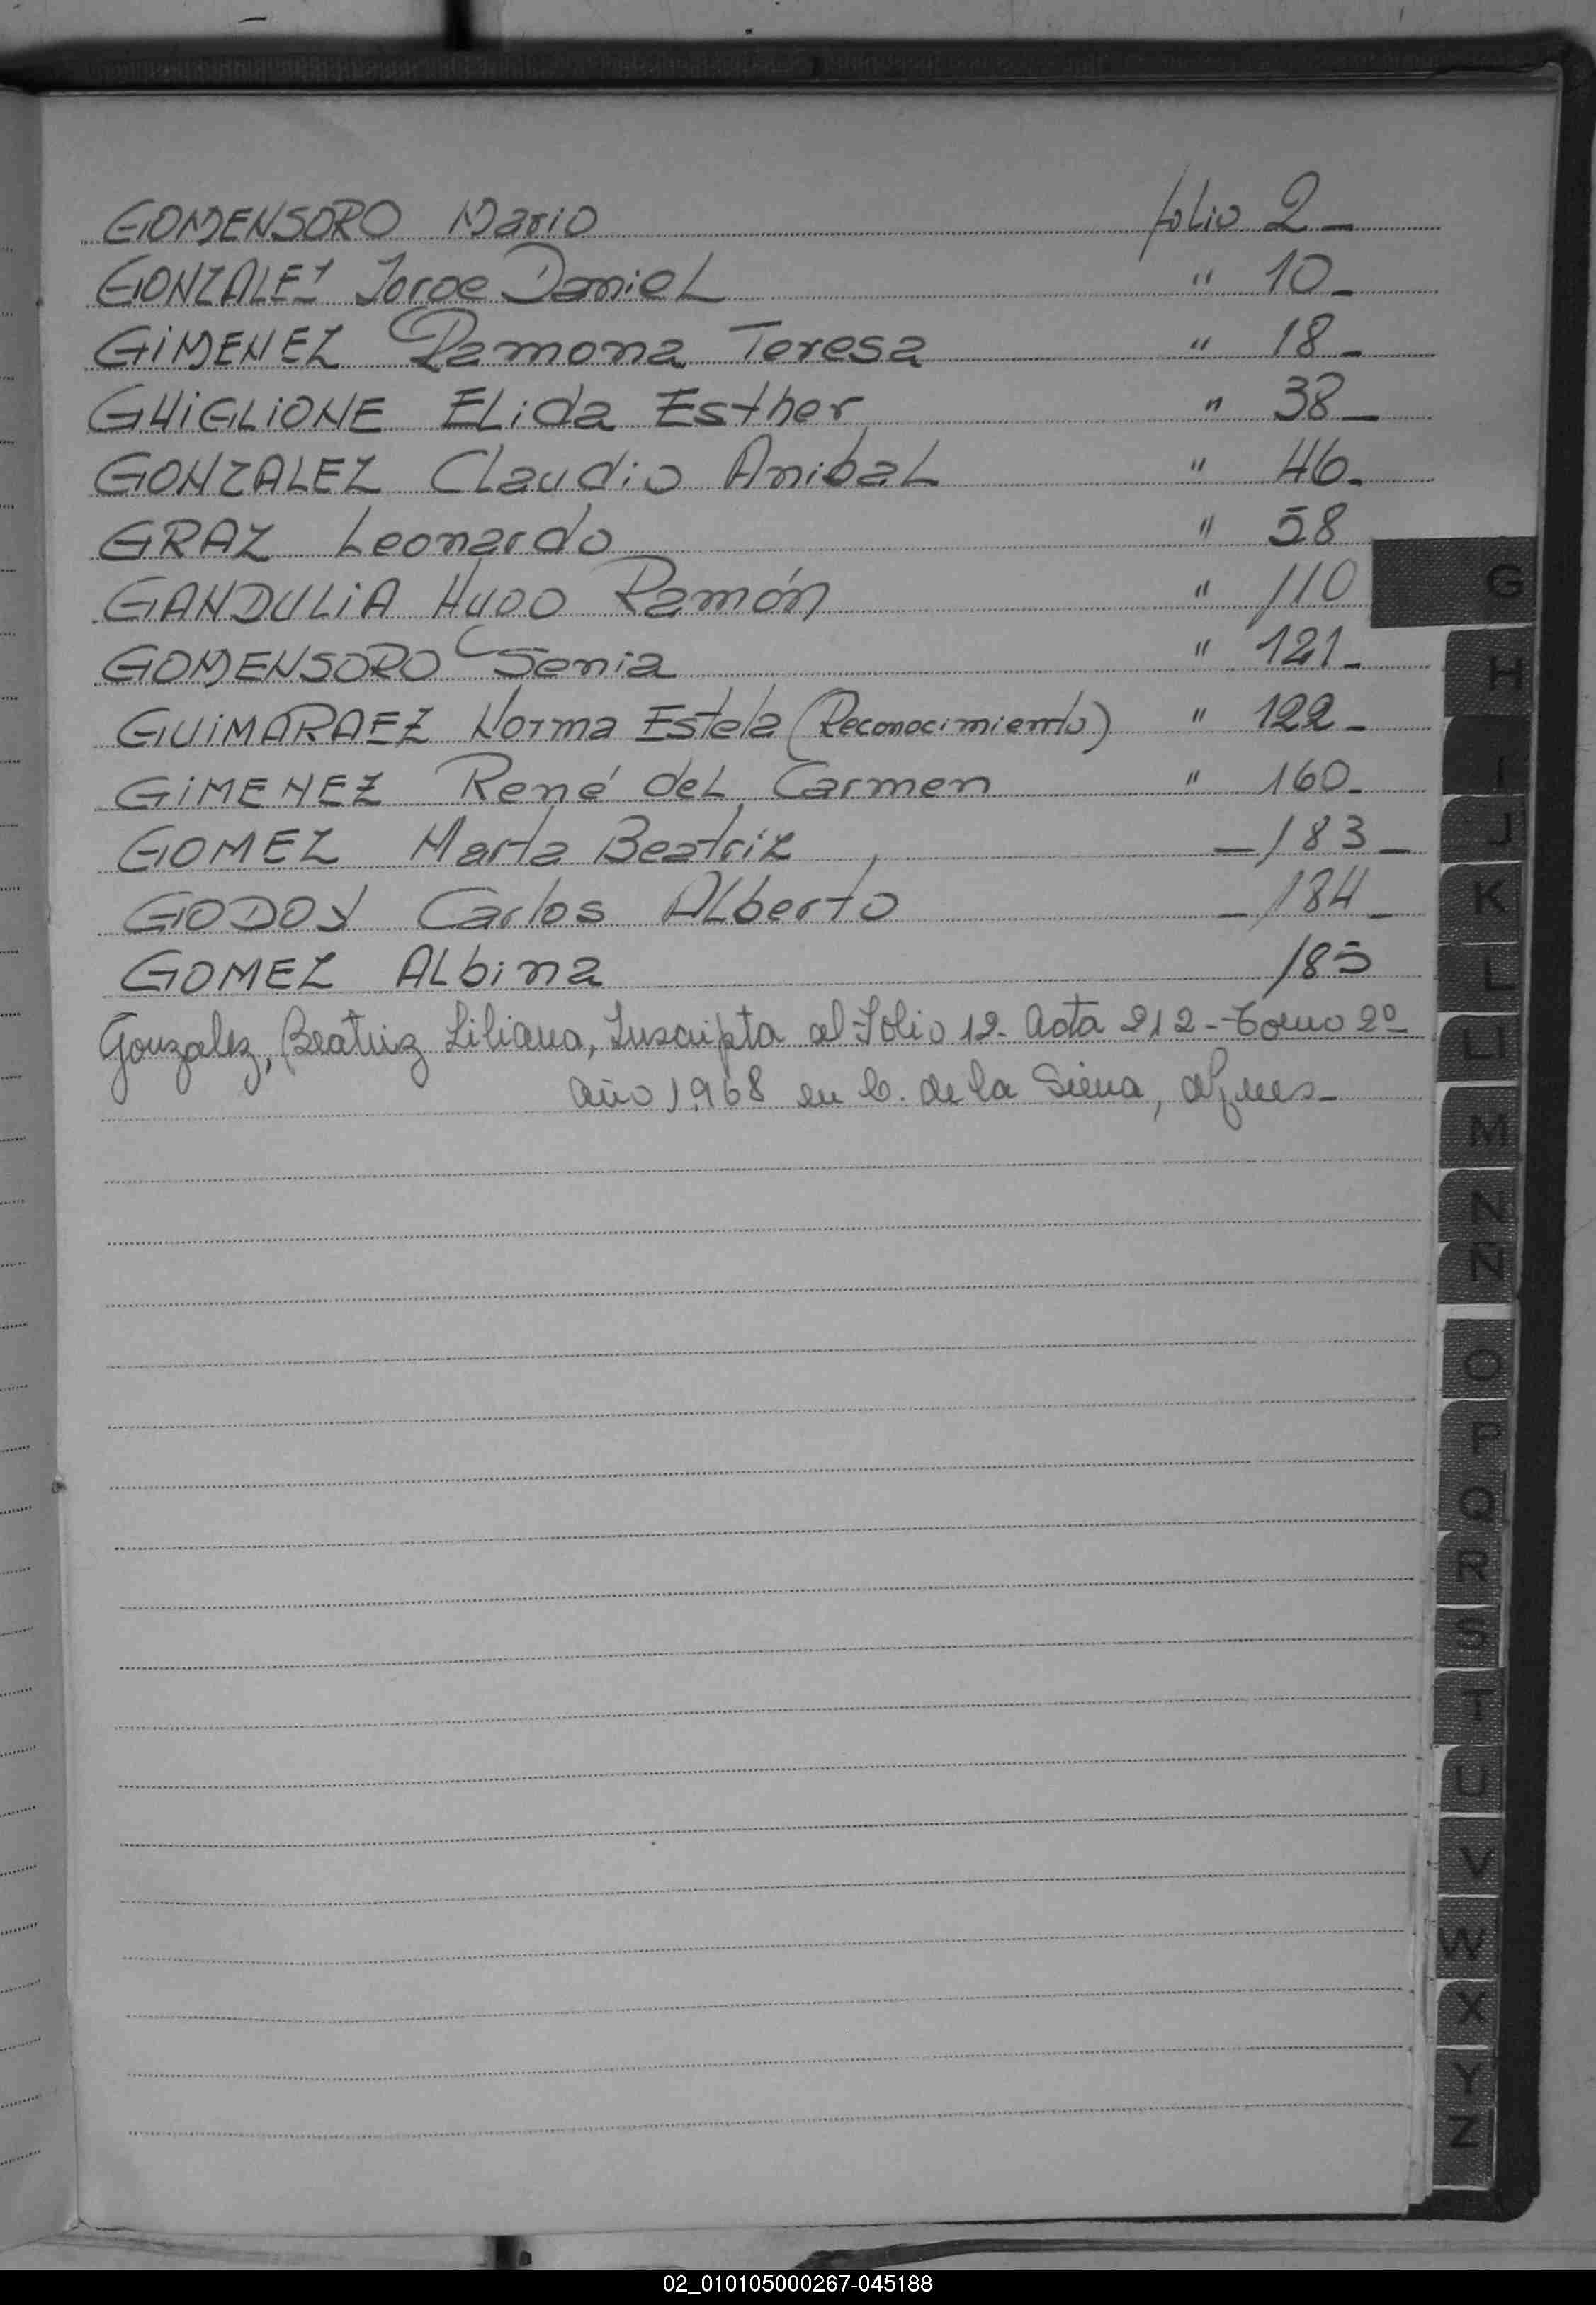 GOMENSORO Mario folio 2_
GONZALEZ Jorge Daniel " 10_
GIMENEZ Ramona Teresa " 18_
GHIGLIONE ELida Esther " 38_
GONZALEZ Claudio AnibaL " 46_
GRAZ Leonardo " 58
GANDULIA Hugo Ramón " 110
GOMENSORO Senia " 121_
GUIMARAEZ Norma Estela (Reconocimiento) " 122_
GIMENEZ René deL Carmen " 160_
GOMEZ Marta Beatriz _183_
GODOY Carlos ALberto _184_
GOMEZ ALbina 185
Gonzalez, Beatriz Liliana, Inscripta al Folio 12- Acta 212- Tomo 2º
año 1968 en C. de la Sierra,
G
H
I
J
K
L
Ll
M
N
Ñ
O
P
Q
R
S
T
U
V
W
X
Y
Z
02_010105000267-045188